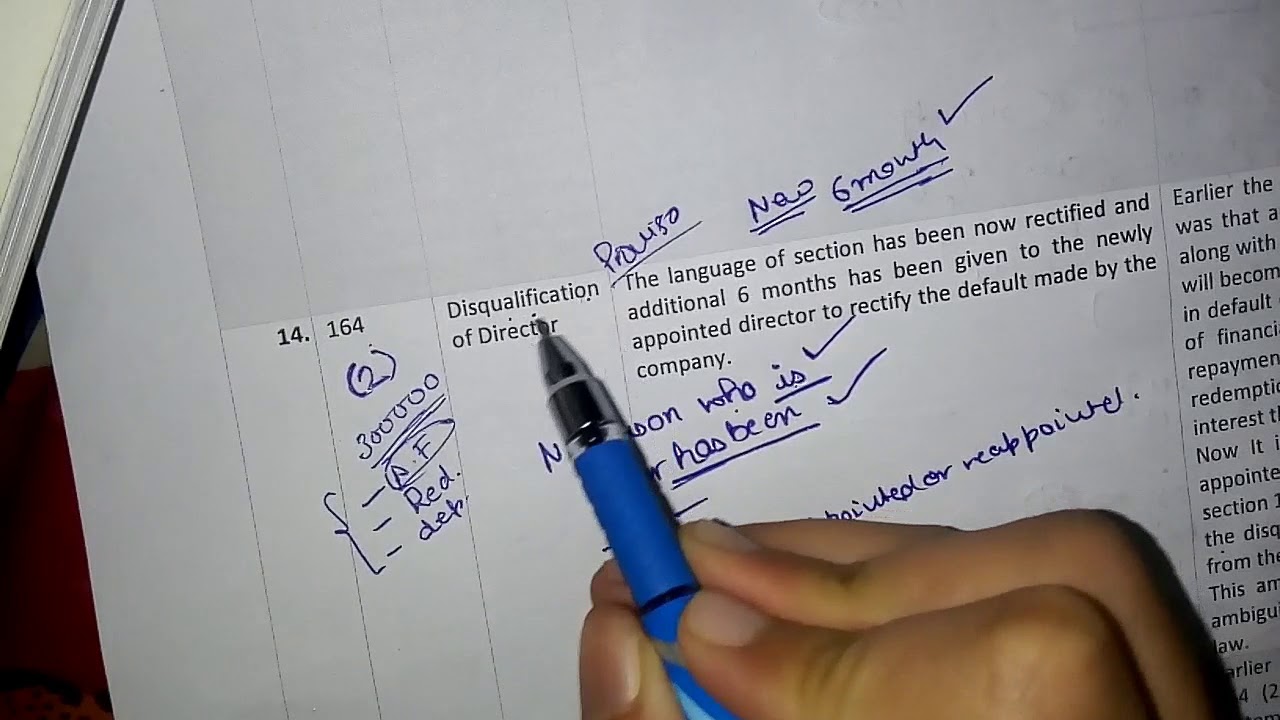 New 6 month
Proviso
14. 164
(2)
300000
A.F
Red.
deb.
Disqualification
of Director
The language of section has been now rectified and
additional 6 months has been given to the newly
appointed director to rectify the default made by the
company.
who is
has been
or reappointed.
Earlier the
was that a
along with
will becom
in default
of financi
repayment
redemptio
interest t
Now It i
appointe
section 1
the disq
from the
This am
ambigu
law.
arlier
4 (2